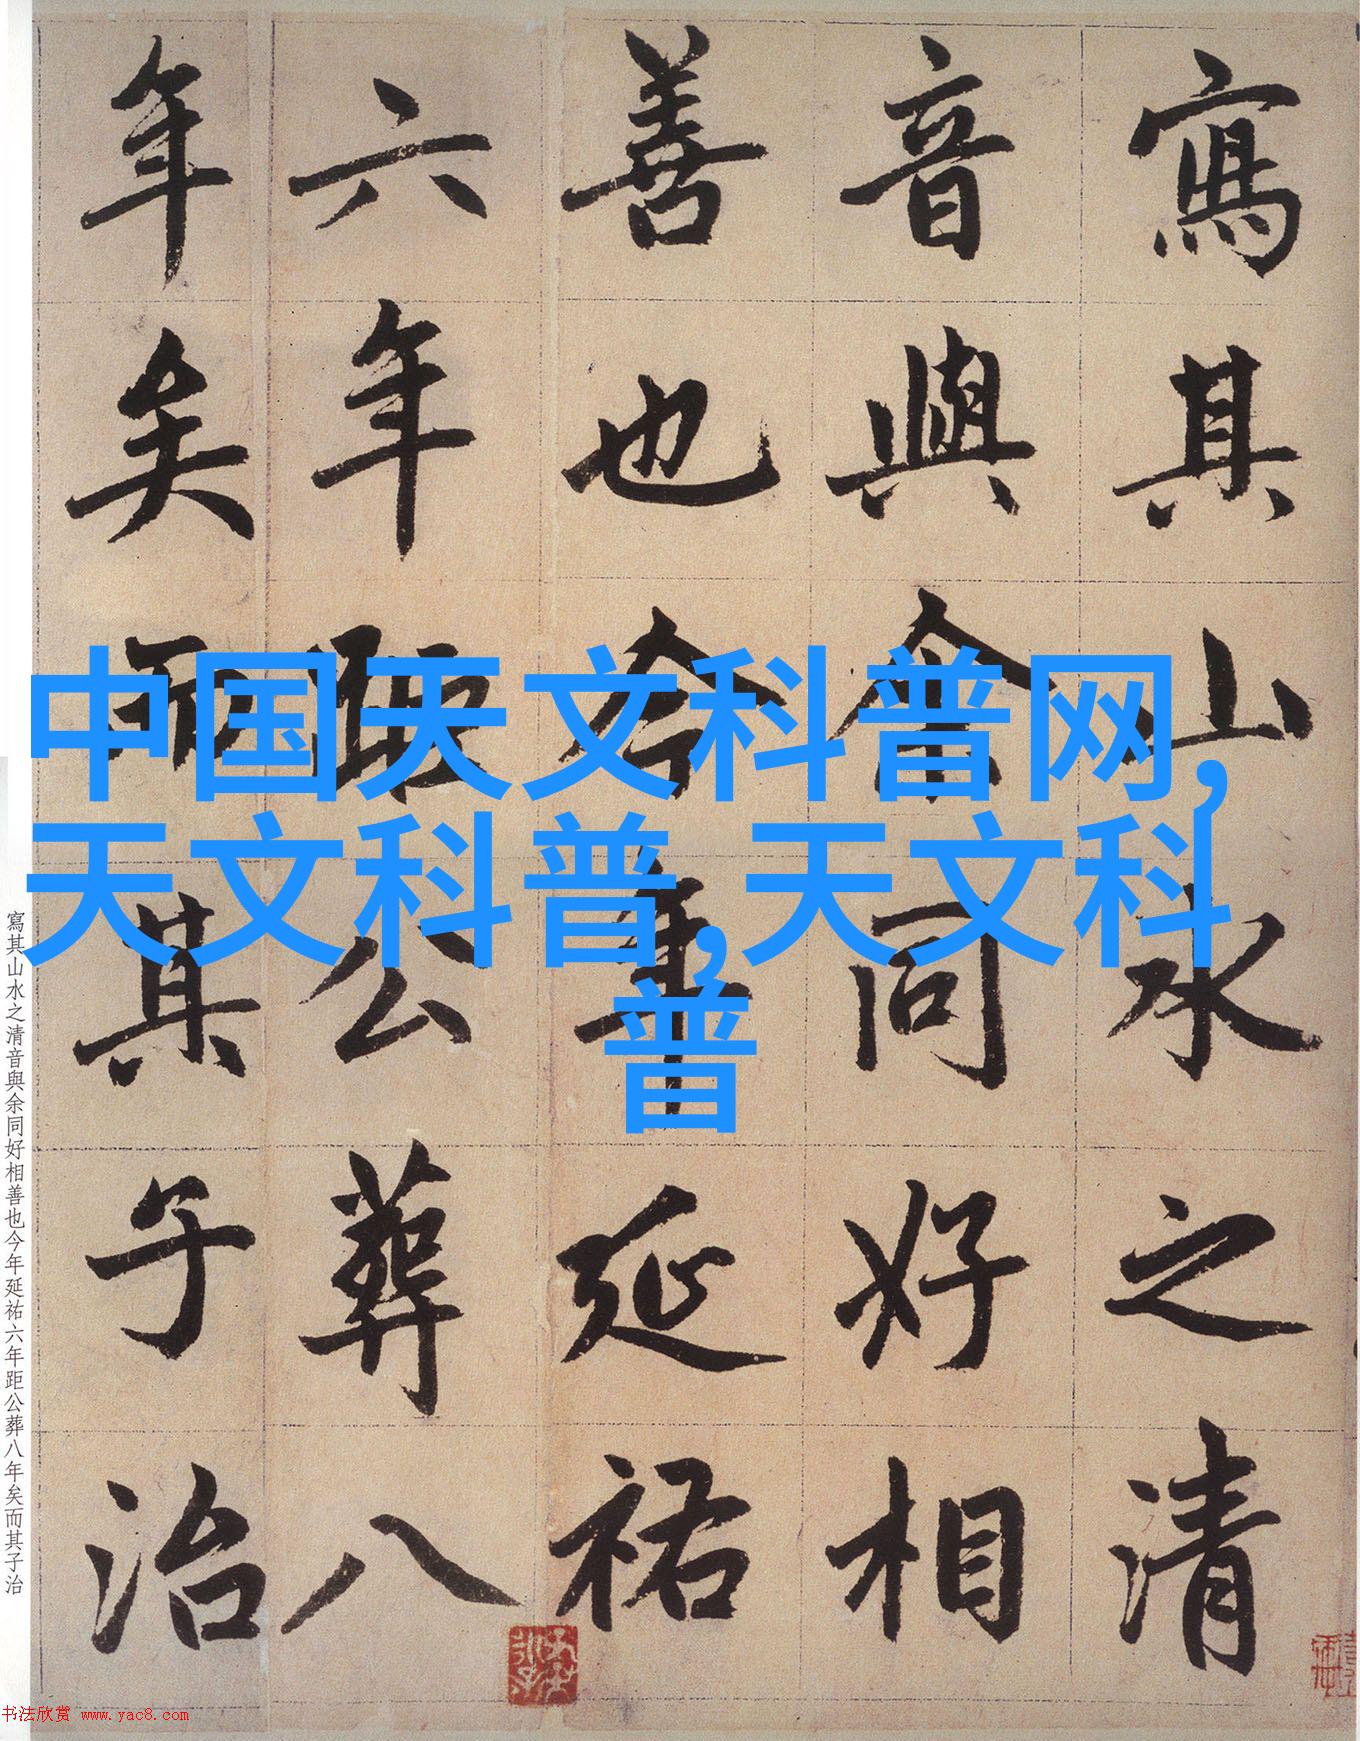 寫其山水之清
音與余同好相
善也今年延祐
六年距公葬八
年矣而其子治
中国天文科普网,
天文科普,天文科
普
寫其山水之清音與余同好相善也今年延祐六年距公葬八年矣而其子治
书法欣赏 www.yac8.com